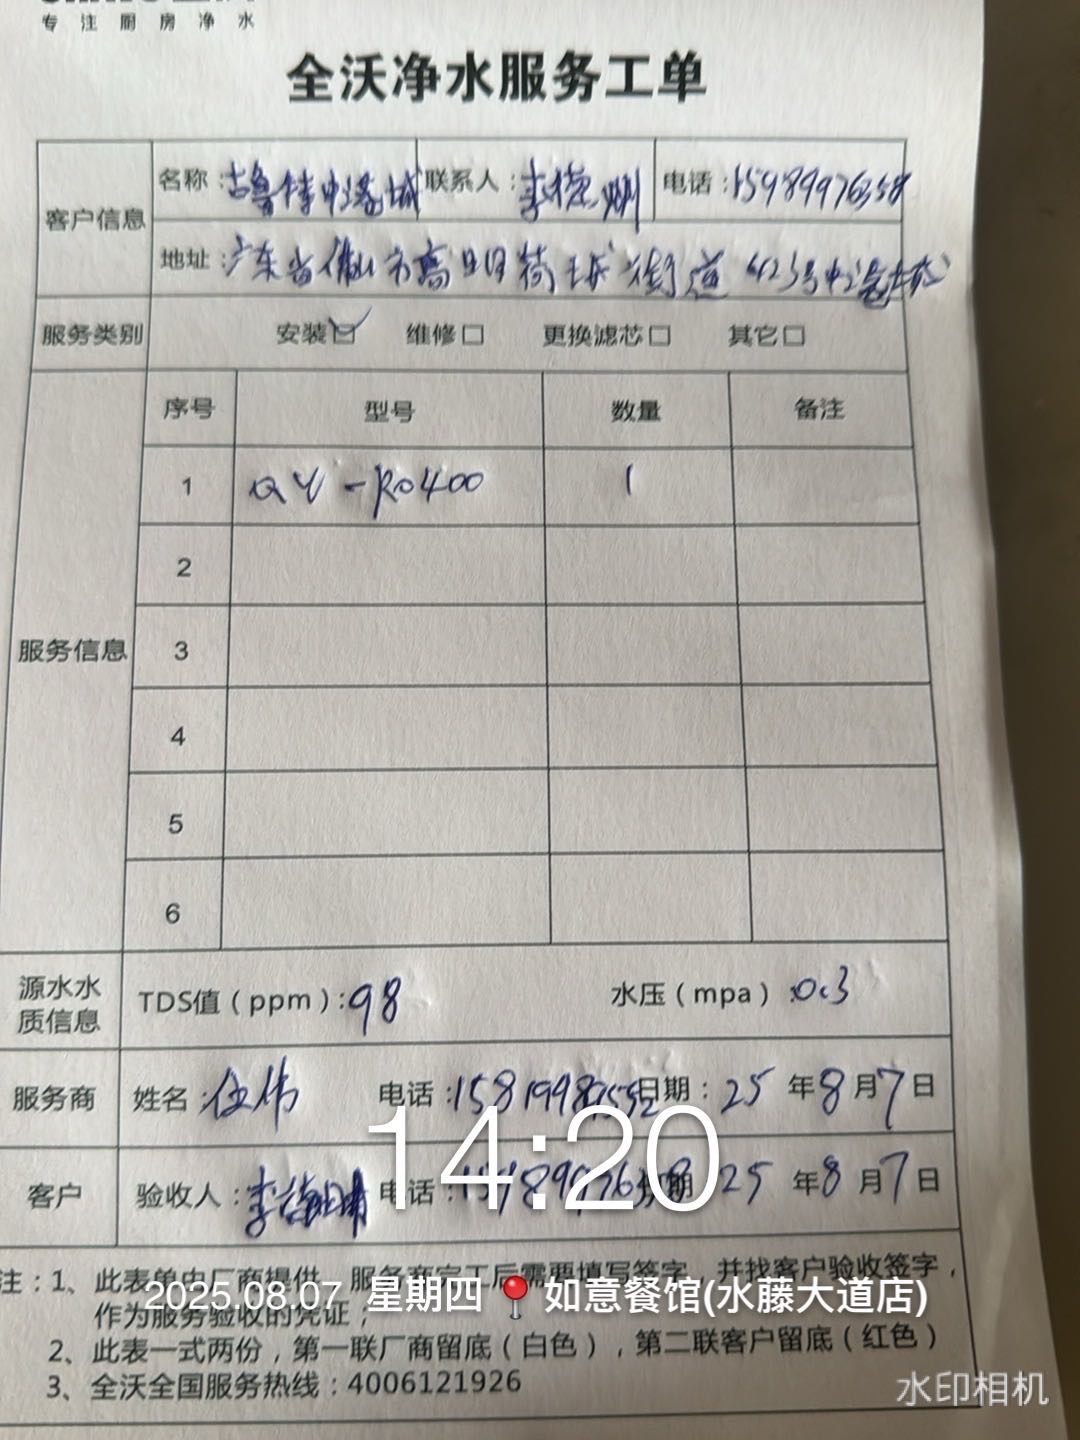 专注厨房净水
全沃净水服务工单
客户信息
名称： 联系人：李 电话：15989976358
地址：广东省佛山市高明 街道 号
服务类别 安装☑ 维修□ 更换滤芯□ 其它□
服务信息
序号 型号 数量 备注
1 QY-RO400 1
2
3
4
5
6
源水水质信息
TDS值（ppm）：98 水压（mpa）：0.3
服务商 姓名：伍伟 电话： 日期：25年8月7日
客户 验收人：李 电话： 25年8月7日
14:20
注：1、此表单由厂商提供，服务商完工后需要填写签字，并找客户验收签字，
作为服务验收的凭证；
2025.08.07 星期四 如意餐馆(水藤大道店)
2、此表一式两份，第一联厂商留底（白色），第二联客户留底（红色）
3、全沃全国服务热线：4006121926
水印相机